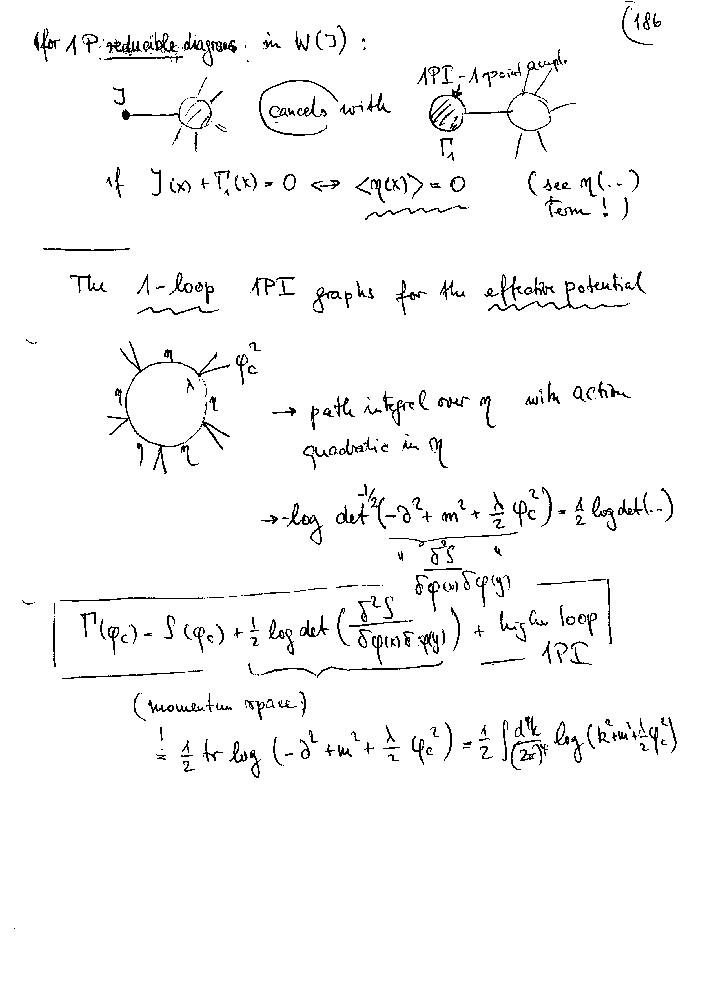 (186
(for 1P reducible diagrams in W(J) :
J cancels with 1PI - 1 point ampl.
Γ₁
if J(x) + Γ₁(x) = 0 ⇔ <η(x)> = 0 (see η(...) term!)
The 1-loop 1PI graphs for the effective potential
η φ_c²
λ
η η
η η
→ path integral over η with action
quadratic in η
→ -log det^{-1/2} (-∂² + m² + λ/2 φ_c²) = 1/2 log det(...)
" δ²S / δφ(x)δφ(y) "
Γ(φ_c) = S(φ_c) + 1/2 log det (δ²S / δφ(x)δφ(y)) + higher loop
1PI
(momentum space)
! = 1/2 tr log (-∂² + m² + λ/2 φ_c²) = 1/2 ∫ d⁴k/(2π)⁴ log (k² + m² + λ/2 φ_c²)